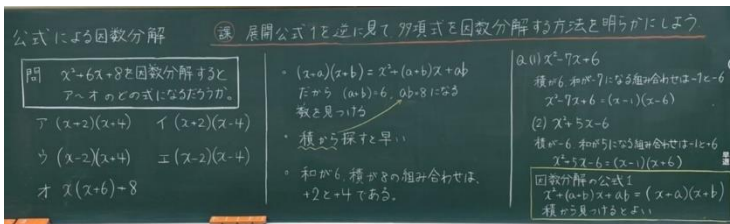 公式による因数分解
課 展開公式1を逆に見て、多項式を因数分解する方法を明らかにしよう
問 x²+6x+8を因数分解すると
ア〜オのどの式になるだろうか。
ア (x+2)(x+4) イ (x+2)(x-4)
ウ (x-2)(x+4) エ (x-2)(x-4)
オ x(x+6)+8
・(x+a)(x+b)=x²+(a+b)x+ab
だから (a+b)=6, ab=8になる
数を見つける
・積から探すと早い
・和が6、積が8の組み合わせは、
+2と+4である。
Q.(1) x²-7x+6
積が6、和が-7になる組み合わせは-1と-6
x²-7x+6=(x-1)(x-6)
(2) x²+5x-6
積が-6、和が5になる組み合わせは-1と+6
x²+5x-6=(x-1)(x+6)
因数分解の公式1
x²+(a+b)x+ab=(x+a)(x+b)
積から見つけるとよい